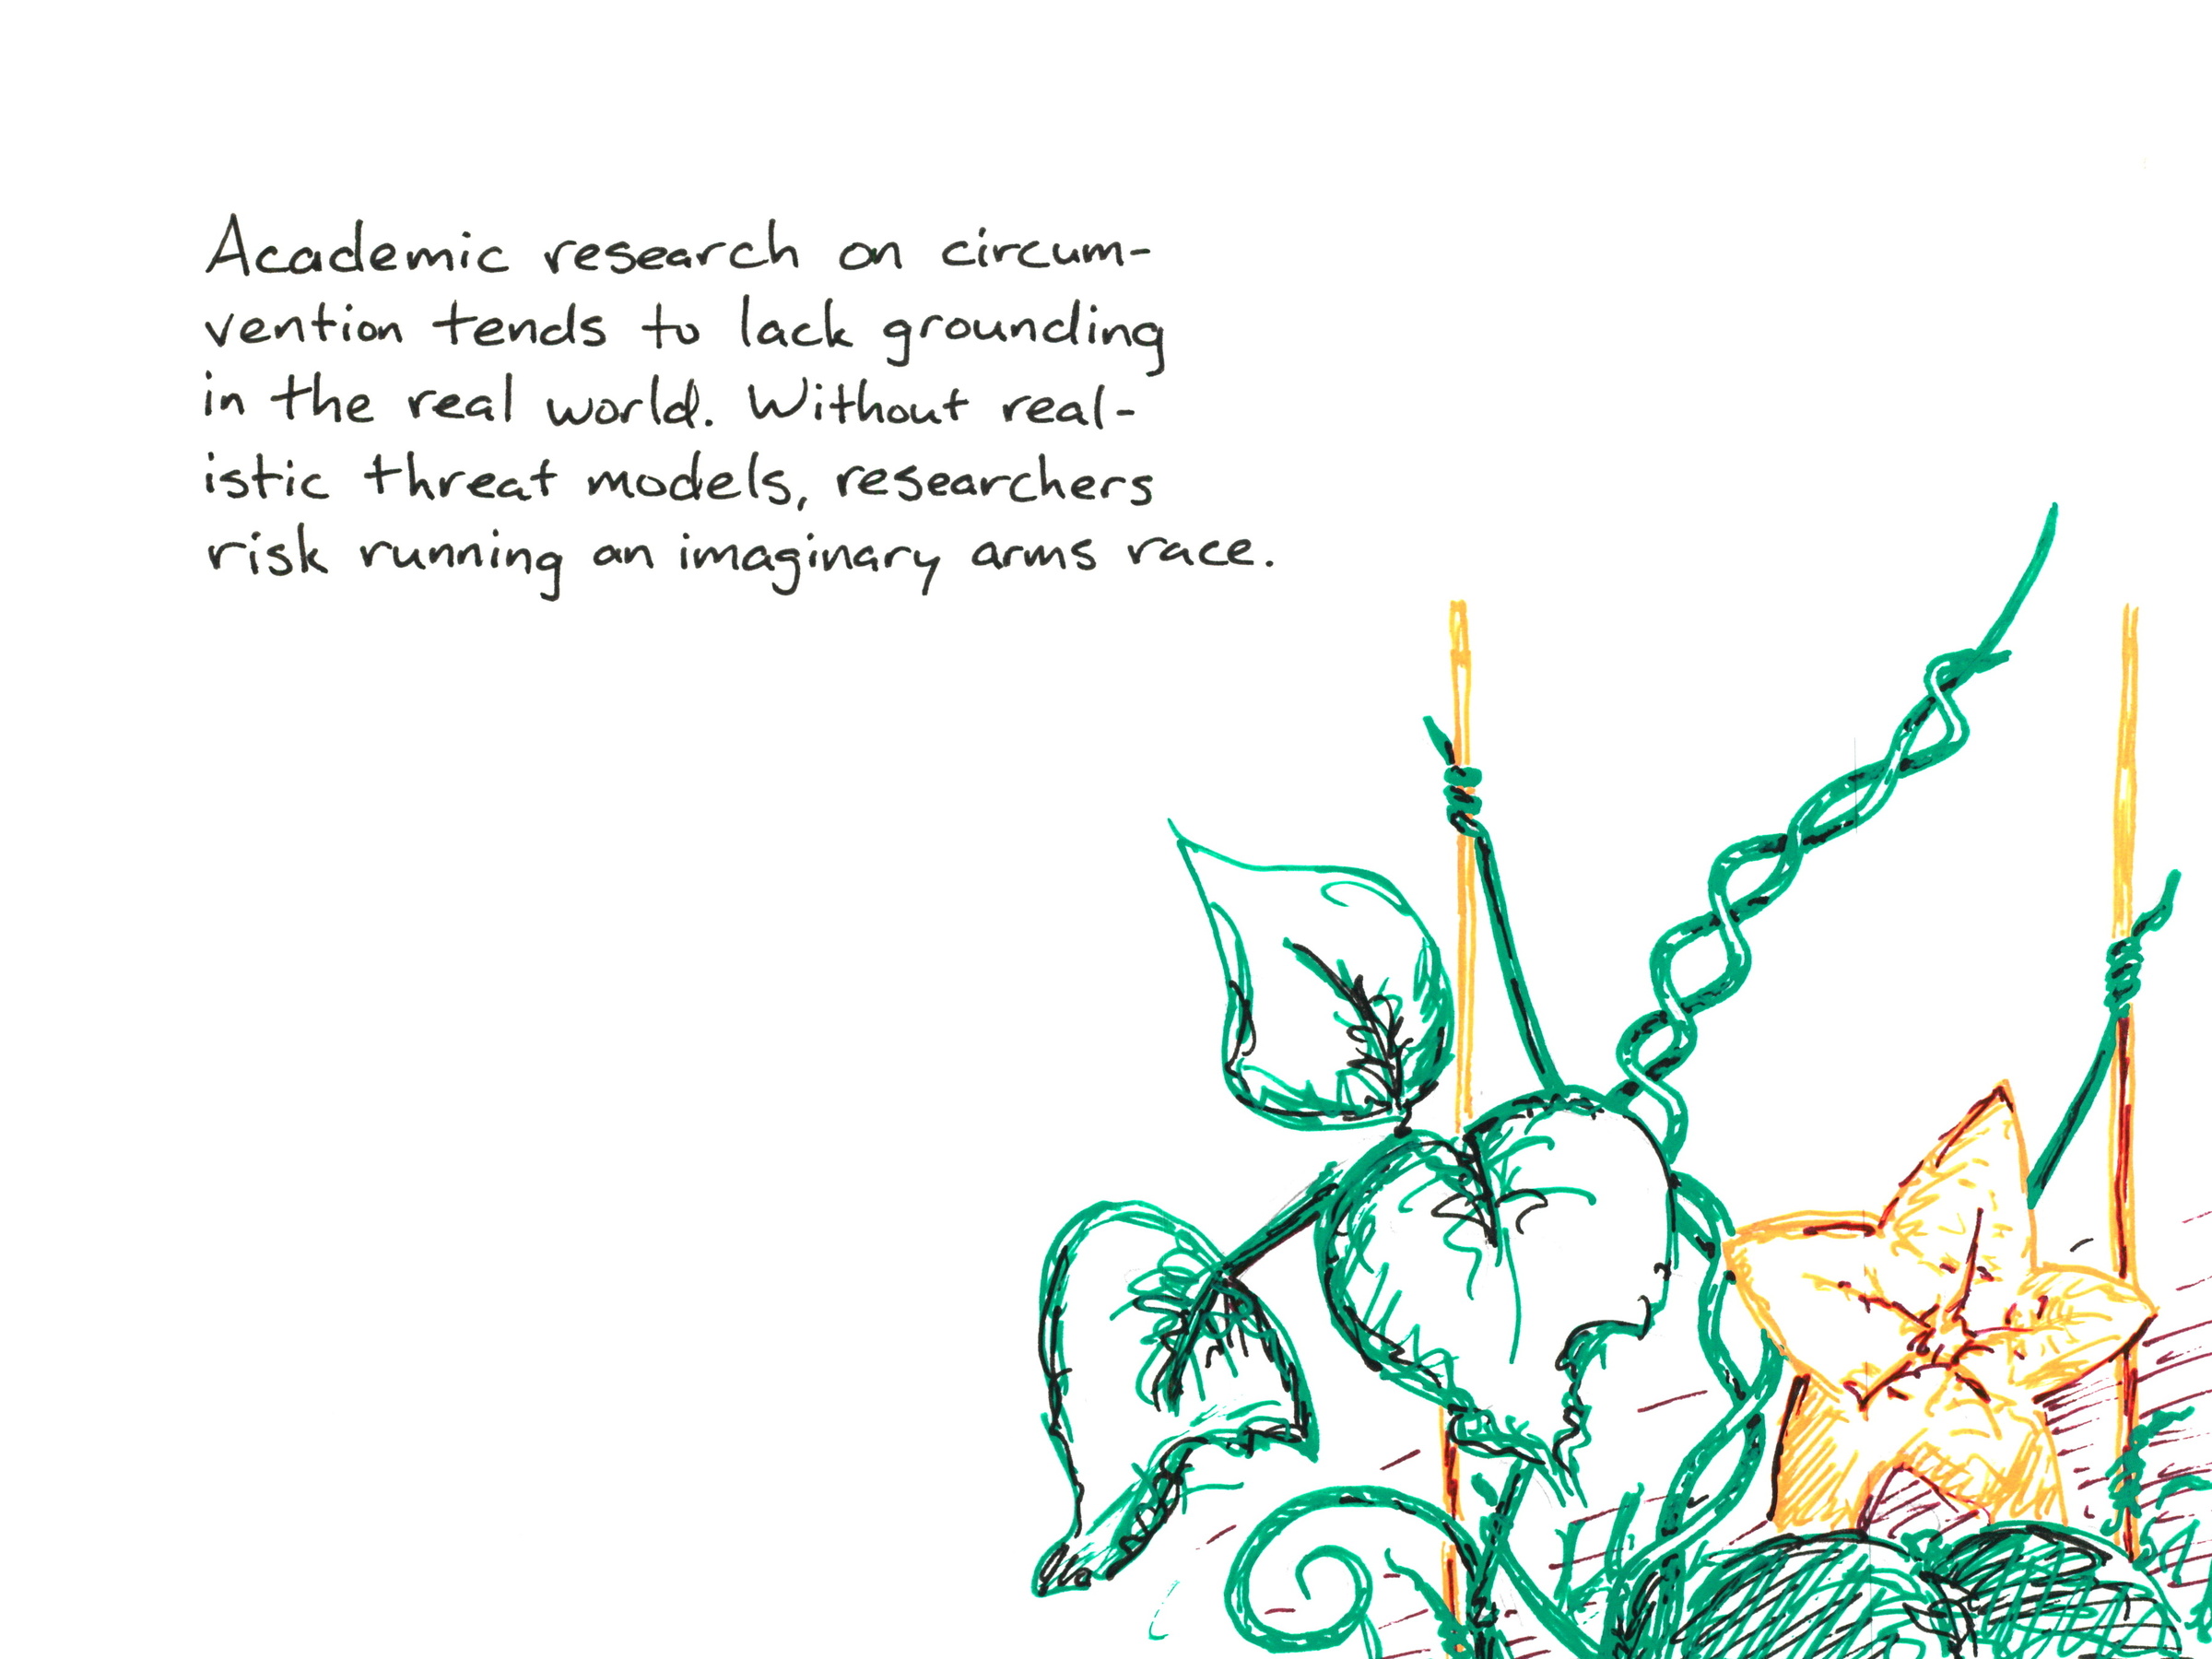 Academic research on circum-
vention tends to lack grounding
in the real world. Without real-
istic threat models, researchers
risk running an imaginary arms race.